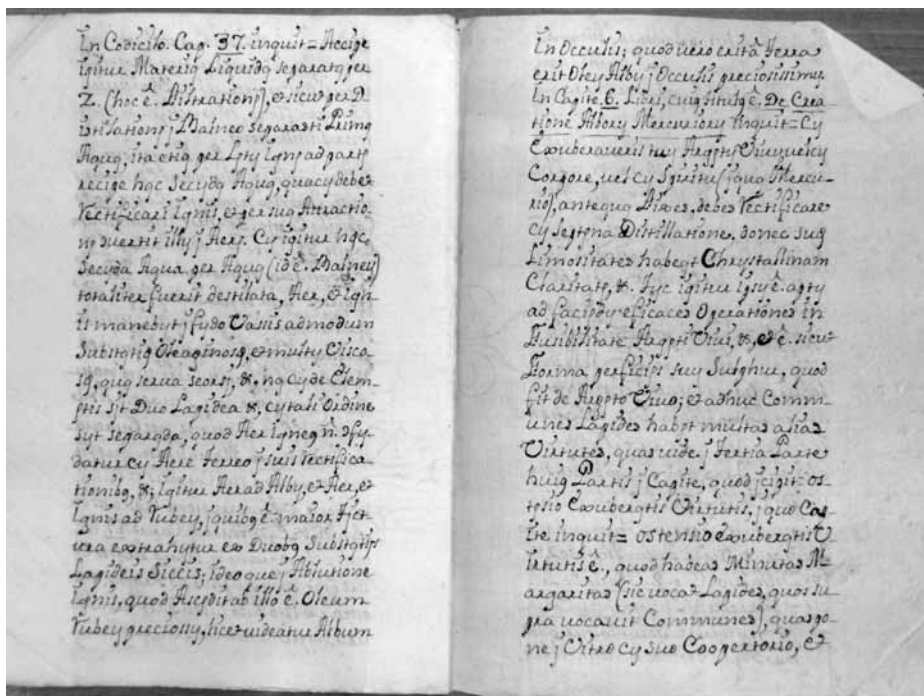 In Codicilo. Cap. 37. inquit= Accipe
igitur Materię Liquidę separatę per
Z. (hoc ê. Distrationj), et sicut per D
istilationj j Balneo separasti Primę
Aquę, ita etię per Lpty Ignj ad partę
recipe hęc Secydę Aquę, quacy debet
Rectificari Ignis, et per suę Attractio
nj
illy j Aerj. Cy igitur hęc
Secyda Aqua per Aquę (id ê. Balney)
totaliter fuerit destilata, Aer, et Ign
is manebyt j fydo Vassis admodum
Substętię Oleaginosę, et multy Visco
sę, quę serva seorsj, &. nę cy de Elem
ptis sjt Duo Lapidea &, cy tali Ordine
syt separęda, quod Aer Igneę n. cōfy
datur cy Aere Terreo j suis rectifica
tionibę, &; igitur Aer ad Alby, et Aer, et
Ignis ad Rubey, j quibę ê. maior Tjct
ura extrahutur ex Duobę Substętijs
Lapideis Siccis; ideoque j Ablutione
Ignis, quod Ascyditab illo ê. Oleum
Rubey preciossy, licet videatur Album
In Occulis; quod vero erit â Terra
erit Oley Alby j Occulis preciosissimy
In Capite. 6. Libri, cuię titulę ê. De Crea
tione Albory Mercuriory inquit= Cy
Exuberaveris tuy Argpty Vivy vel cy
Corpore, vel cy Spiritu (j qua Mercu
rio), antequa Dixes, debes rectificare
cy Septena Distillatione, donec suę
Limositates habeęt Chrystallinam
Claritatę, &. Tyc igitur ipsy ê. apty
ad faciędy eficaces Operationes in
Fusibilitate Argpti Vivi, &, et ê. sicut
Forma perficips suy Sulphur, quod
fit de Argpto Vivo; et adhuc Comm
unes Lapides habpt multas alias
Virtutes, quas vide j Tertia Parte
huię Partis j Capite, quod jcipit= os
tpsio Exubergtis Virtutis, j quo Cap
ite inquit= ostensio exubergtis V
irtutis ê., quod habeas Minutas M
argaritas (sic vocat Lapides, quos su
pra vocavit Communes), quas po
ne j Vitro cy suo Coopertorio, et